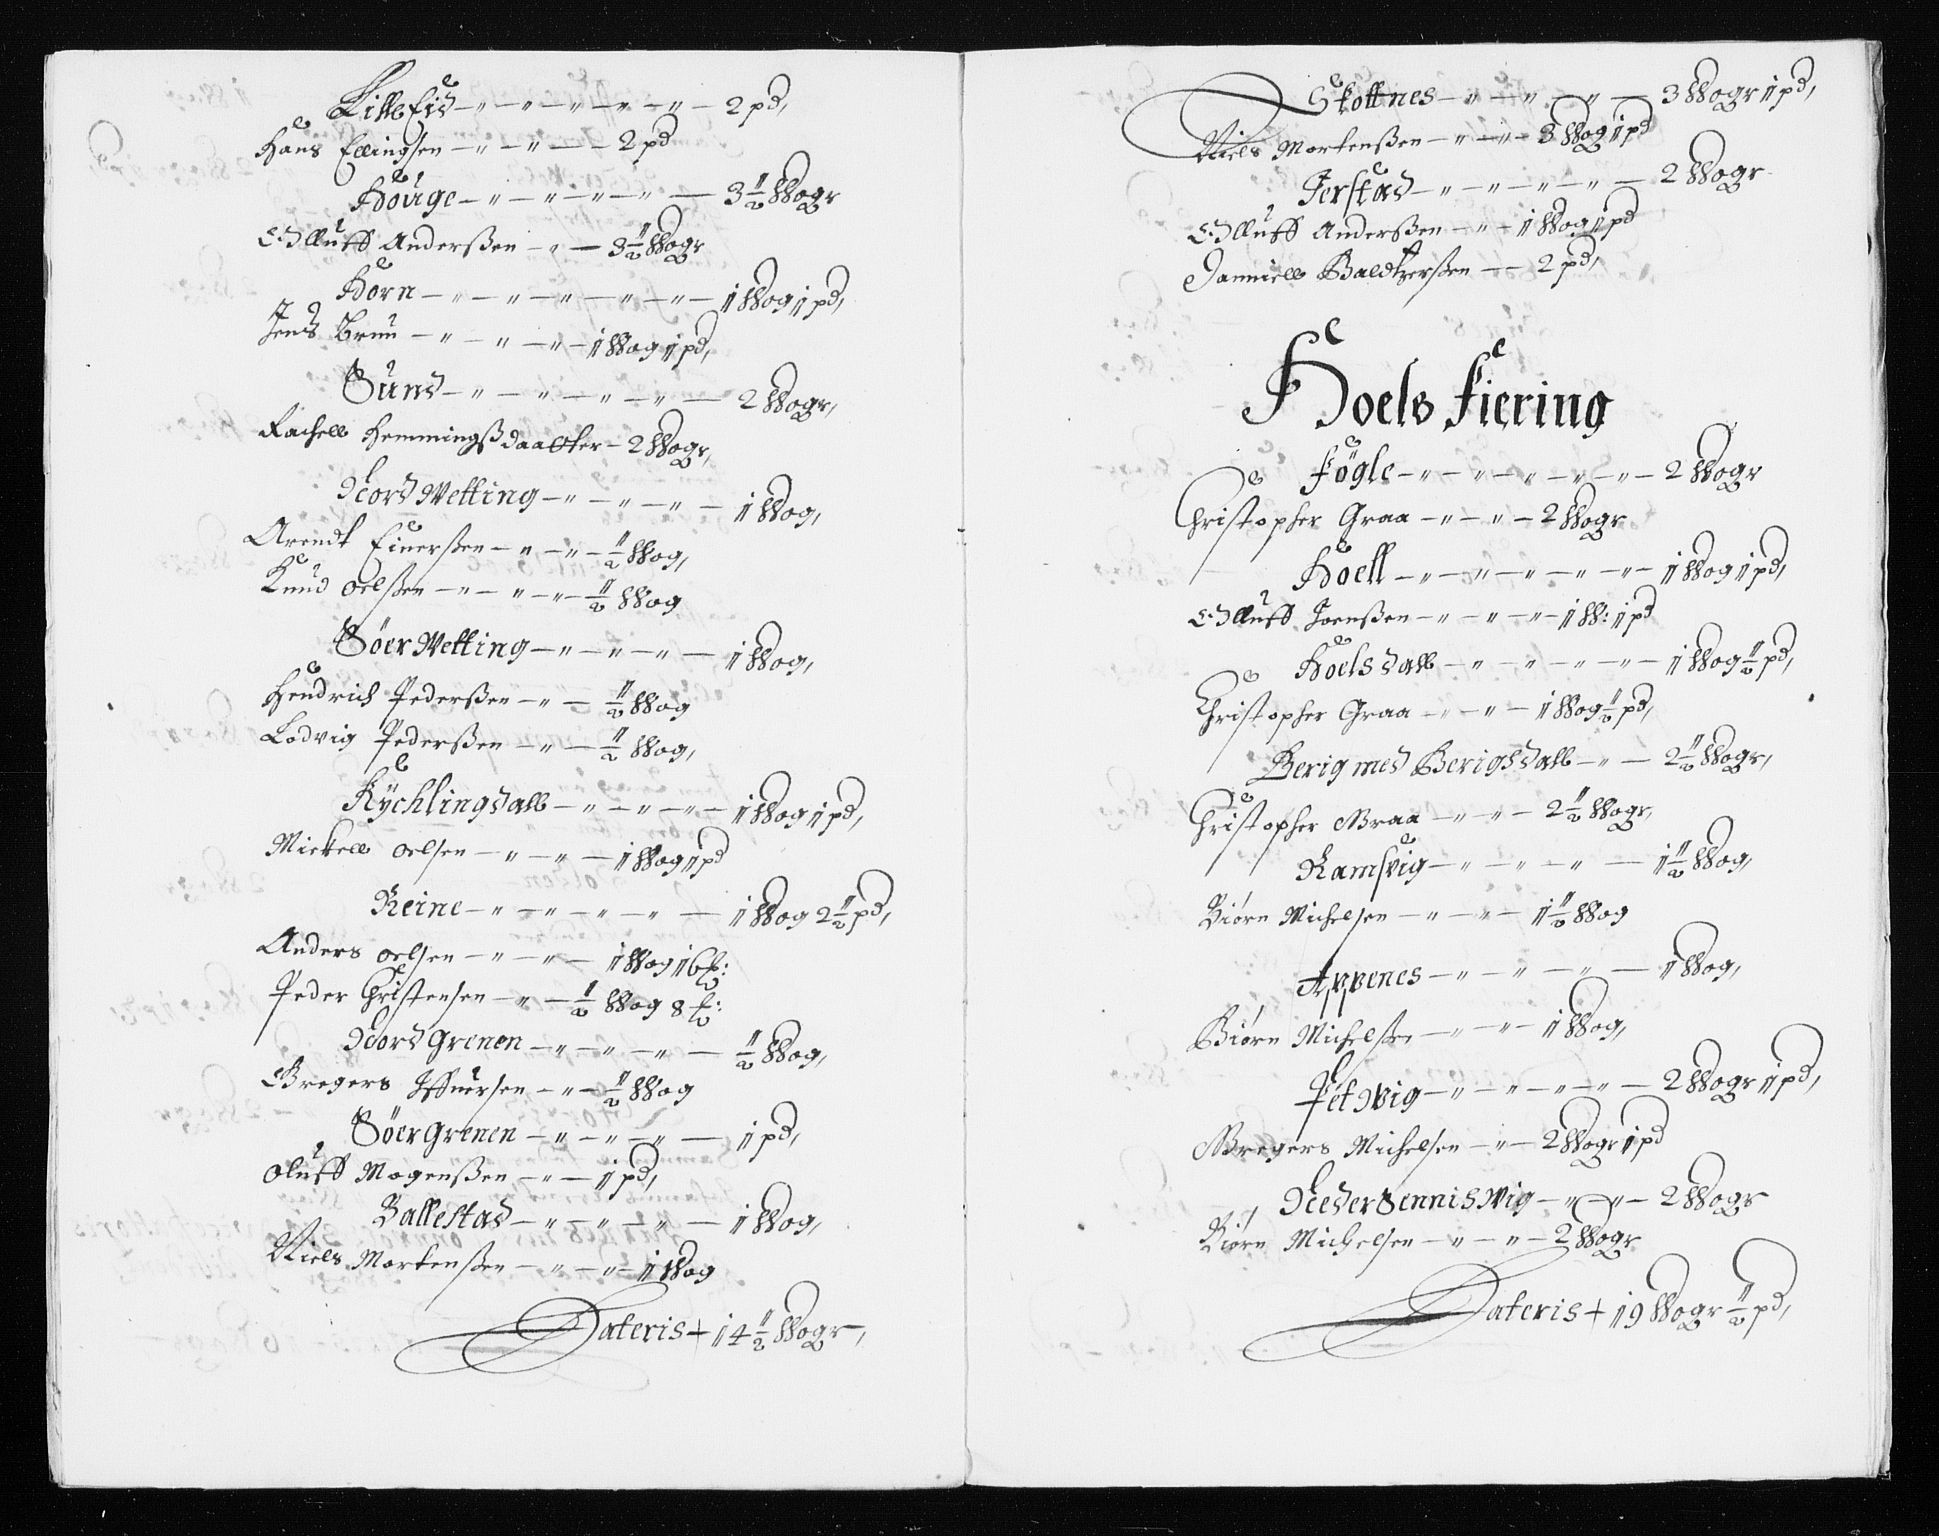 LilleEid – " – " – " – " – " – 2 pd,
Hans Ellingsen – " – " – – 2 pd
Houge – " – " – " – " – 3 ½ Wogr
Olluff Anderßen – " – 3 ½ Wogr
Horn – " – " – " – " – " – 1 Wog 1 pd,
Jens Bruu – " – " – " – 1 Wog 1 pd,
Sund – " – " – " – " – 2 Wogr,
Rachell Hemmingßdaatter – 2 Wogr,
Nord Vetting – " – " – " – 1 Wog,
Arendt Einerßen – " – " – ½ Wog,
Knud Oelßen – " – " – " – ½ Wog
Søer Vetting – " – " – " – 1 Wog,
Hendrich Pederßen – " – ½ Wog
Lodvig Pederßen – " – ½ Wog,
Kÿchlingdall – " – " – " – 1 Wog 1 pd,
Mickell Oelsen – " – " – 1 Wog 1 pd
Reine – " – " – " – " – 1 Wog 2 ½ pd,
Anders Oelsen – " – " – 1 Wog 16 ℔:
Peder Christensen – " – ½ Wog 8 ℔:
Nord Grenen – " – " – " – ½ Wog,
Gregers Iffuersen – " – ½ Wog
Søer Grenen – " – " – " – 1 pd,
Oluff Mogenßen – " – 1 pd,
Ballestad – " – " – " – 1 Wog,
Niels Mortenßen – " – " – 1 Wog
Lateris + 14 ½ Wogr,
Skottnes – " – " – " – 3 Wogr 1 pd,
Niels Mortenßen – " – " – 3 Wog 1 pd
Jerstad – " – " – " – " – 2 Wogr
Olluff Anderßen – " – 1 Wog 1 pd
Danniell Baldtzerßen – – 2 pd,
Hoels Fiering
Føgle – " – " – " – " – " – 2 Wogr
Christopher Graa – " – " – 2 Wogr
Hoell – " – " – " – " – " – 1 Wog 1 pd,
Olluff Joenßen – " – " – " – 1 W: 1 pd
Hoelsdall – " – " – " – " – 1 Wog ½ pd,
Christopher Graa – " – " – 1 Wog ½ pd,
Berig med Berigsdall – " – 2 ½ Wogr,
Christopher Graa – " – " – 2 ½ Wogr,
Ramsvig – " – " – " – 1 ½ Wog,
Biørn Michelsen – " – " – 1 ½ Wog
Appenes – " – " – " – 1 Wog,
Biørn Michelßen – " – " – 1 Wog,
Petvig – " – " – " – " – 2 Wogr 1 pd,
Gregers Michelsen – " – 2 Wogr 1 pd
Neder Sennisvig – " – " – 2 Wogr
Biørn Michelsen – " – " – 2 Wogr
Lateris + 19 Wogr ½ pd,